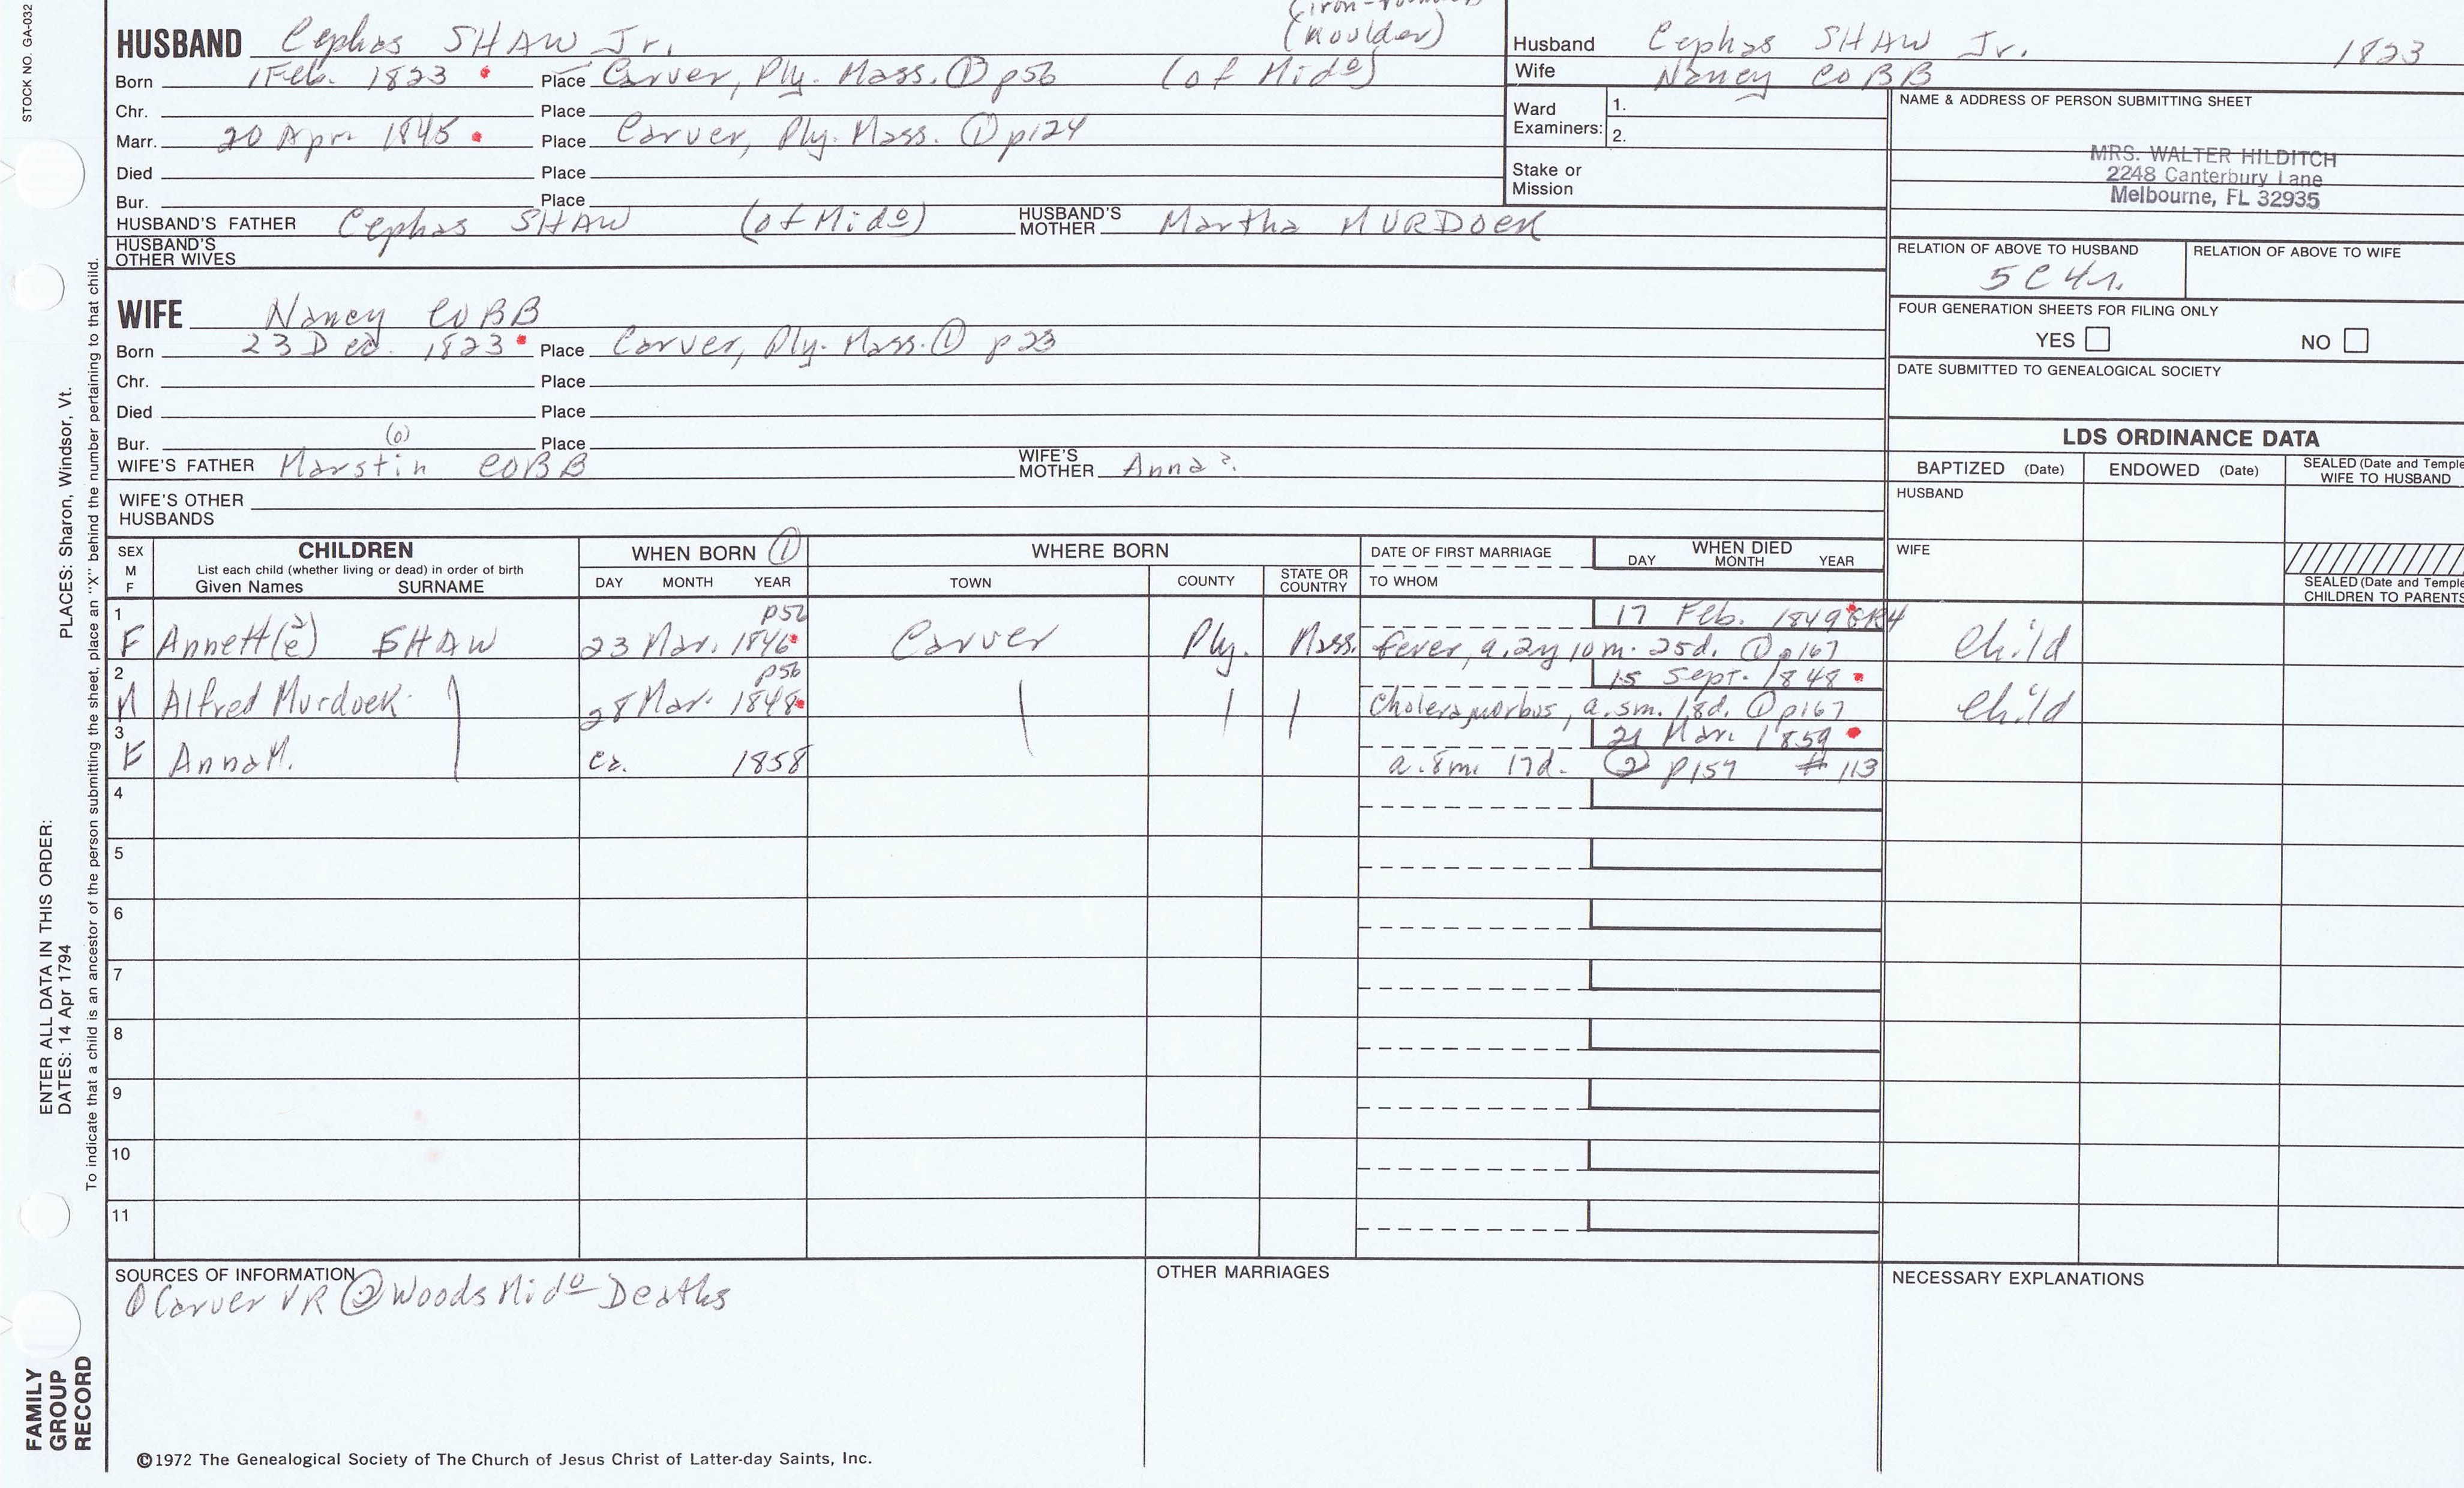 STOCK NO. GA-032
HUSBAND Cephas SHAW Jr. (moulder)
Born 1 Feb. 1823 Place Carver, Ply. Mass. ① p56 (of Mido)
Chr. Place
Marr. 20 Apr 1845 Place Carver, Ply. Mass. ① p124
Died Place
Bur. Place
HUSBAND'S FATHER Cephas SHAW (of Mido) HUSBAND'S MOTHER Martha MURDOCK
HUSBAND'S OTHER WIVES
Husband Cephas SHAW Jr. 1823
Wife Nancy COBB
Ward Examiners: 1.
2.
Stake or Mission
NAME & ADDRESS OF PERSON SUBMITTING SHEET
MRS. WALTER HILDITCH
2248 Canterbury Lane
Melbourne, FL 32935
RELATION OF ABOVE TO HUSBAND RELATION OF ABOVE TO WIFE
5C4r.
FOUR GENERATION SHEETS FOR FILING ONLY
YES NO
DATE SUBMITTED TO GENEALOGICAL SOCIETY
WIFE Nancy COBB
Born 23 Dec. 1823 Place Carver, Ply. Mass. ① p23
Chr. Place
Died Place
Bur. Place
(o)
WIFE'S FATHER Marstin COBB WIFE'S MOTHER Anna ?.
WIFE'S OTHER HUSBANDS
LDS ORDINANCE DATA
BAPTIZED (Date) ENDOWED (Date) SEALED (Date and Temple
WIFE TO HUSBAND
HUSBAND
WIFE
SEALED (Date and Temple
CHILDREN TO PARENTS
SEX M F CHILDREN WHEN BORN ① WHERE BORN DATE OF FIRST MARRIAGE WHEN DIED
List each child (whether living or dead) in order of birth
Given Names SURNAME DAY MONTH YEAR TOWN COUNTY STATE OR COUNTRY TO WHOM DAY MONTH YEAR
1 p56 17 Feb. 1849 GR4
F Annett(e) SHAW 23 Mar. 1846 Carver Ply. Mass. fever, a. 2y 10m. 25d. ① p167 Child
2 p56 15 Sept. 1848
M Alfred Murdock 28 Mar. 1848 Cholera morbus, a. 5m. 18d. ① p167 Child
3 21 Mar. 1859
F Anna M. ca. 1858 a. 8m. 17d. ② p157 #113
4
5
6
7
8
9
10
11
SOURCES OF INFORMATION
① Carver VR ② Woods Mido Deaths
OTHER MARRIAGES
NECESSARY EXPLANATIONS
©1972 The Genealogical Society of The Church of Jesus Christ of Latter-day Saints, Inc.
ENTER ALL DATA IN THIS ORDER:
DATES: 14 Apr 1794 PLACES: Sharon, Windsor, Vt.
To indicate that a child is an ancestor of the person submitting the sheet, place an "X" behind the number pertaining to that child.
FAMILY
GROUP
RECORD